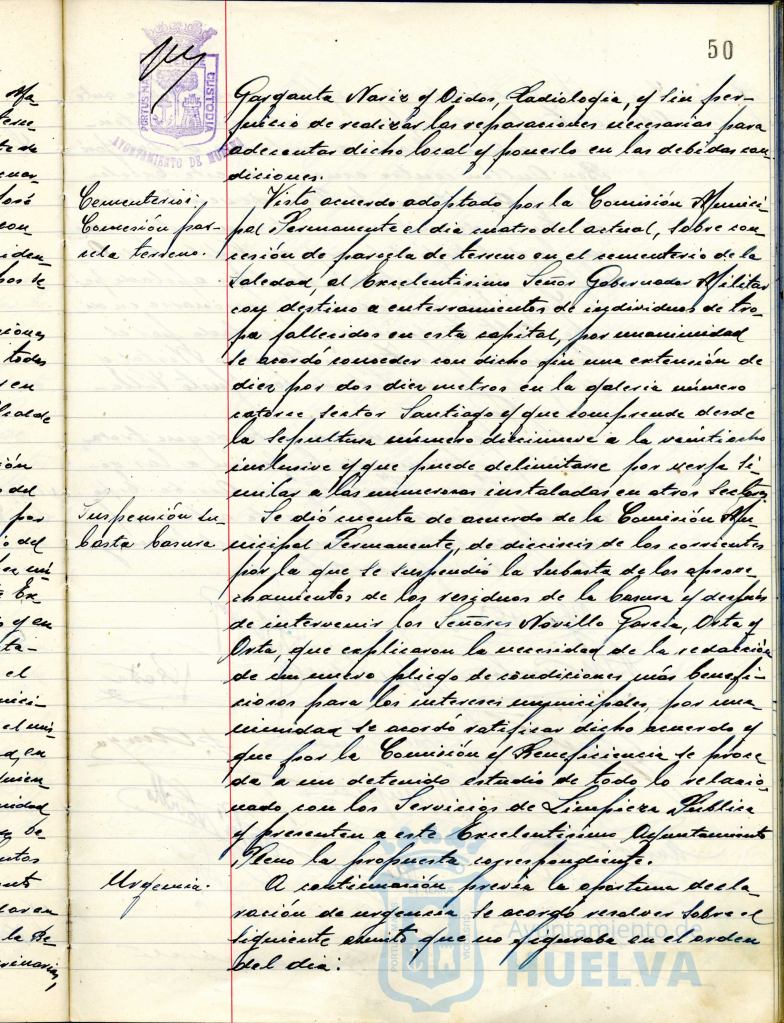 50
PORTUS MARIS
CUSTODIA
AYUNTAMIENTO DE HUELVA
Garganta Nariz y Oidos, Radiologia, y sin per-
juicio de realizar las reparaciones necesarias para
adecentar dicho local y ponerlo en las debidas con-
diciones.
Cementerios:
Concesión par-
cela terreno.
Visto acuerdo adoptado por la Comisión Munici
pal Permanente el dia cuatro del actual, sobre con-
cesión de parcela de terreno en el cementerio de la
Soledad, al Excelentisimo Señor Gobernador Militar
con destino a enterramientos de individuos de tro-
pa fallecidos en esta capital, por unanimidad
se acordó conceder con dicho fin una extensión de
diez por dos diez metros en la galeria número
catorce, sector Santiago y que comprende desde
la sepultura número diecinueve a la veintiocho
inclusive y que puede delimitarse por verja si-
milar a las numerosas instaladas en otros sectores
Suspensión su-
basta basura
Se dió cuenta de acuerdo de la Comisión Mu-
nicipal Permanente, de dieciseis de los corrientes
por la que se suspendió la subasta de los aprove-
chamientos de los residuos de la basura y después
de intervenir los Señores Novillo García, Orta y
Orta, que explicaron la necesidad de la redacción
de un nuevo pliego de condiciones más benefi-
ciosos para los intereses municipales, por una-
nimidad se acordó ratificar dicho acuerdo y
que por la Comisión y Beneficiencia se proce-
da a un detenido estudio de todo lo relacio-
nado con los Servicios de Limpieza Publica
y presenten a este Excelentisimo Ayuntamiento
Pleno la propuesta correspondiente.
Urgencia.
A continuación previa la oportuna decla-
ración de urgencia se acordó resolver sobre el
siguiente asunto que no figuraba en el orden
del dia:
Ayuntamiento de
HUELVA